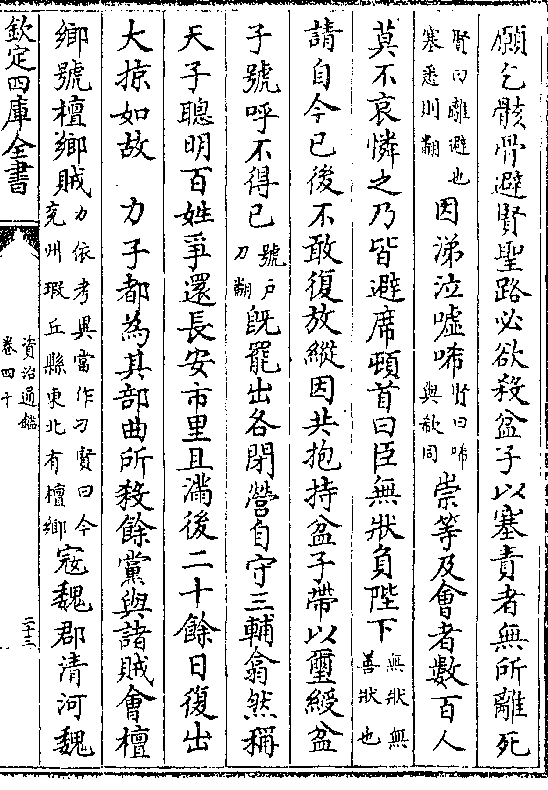 願乞骸骨避賢聖路必欲殺盆子以塞責者無所離死
賢曰離避也塞悉則翻因涕泣噓唏賢曰唏與欷同崇等及會者數百人
莫不哀憐之乃皆避席頓首曰臣無狀負陛下無狀無善狀也
請自今已後不敢復放縱因共抱持盆子帶以璽綬盆
子號呼不得已號戶刀翻既罷出各閉營自守三輔翕然稱
天子聰明百姓爭還長安市里且滿後二十餘日復出
大掠如故 力子都為其部曲所殺餘黨與諸賊會檀
鄉號檀鄉賊力依考異當作刁賢曰今兖州瑕丘縣東北有檀鄉寇魏郡清河魏
欽定四庫全書
資治通鑑
卷四十
二十三